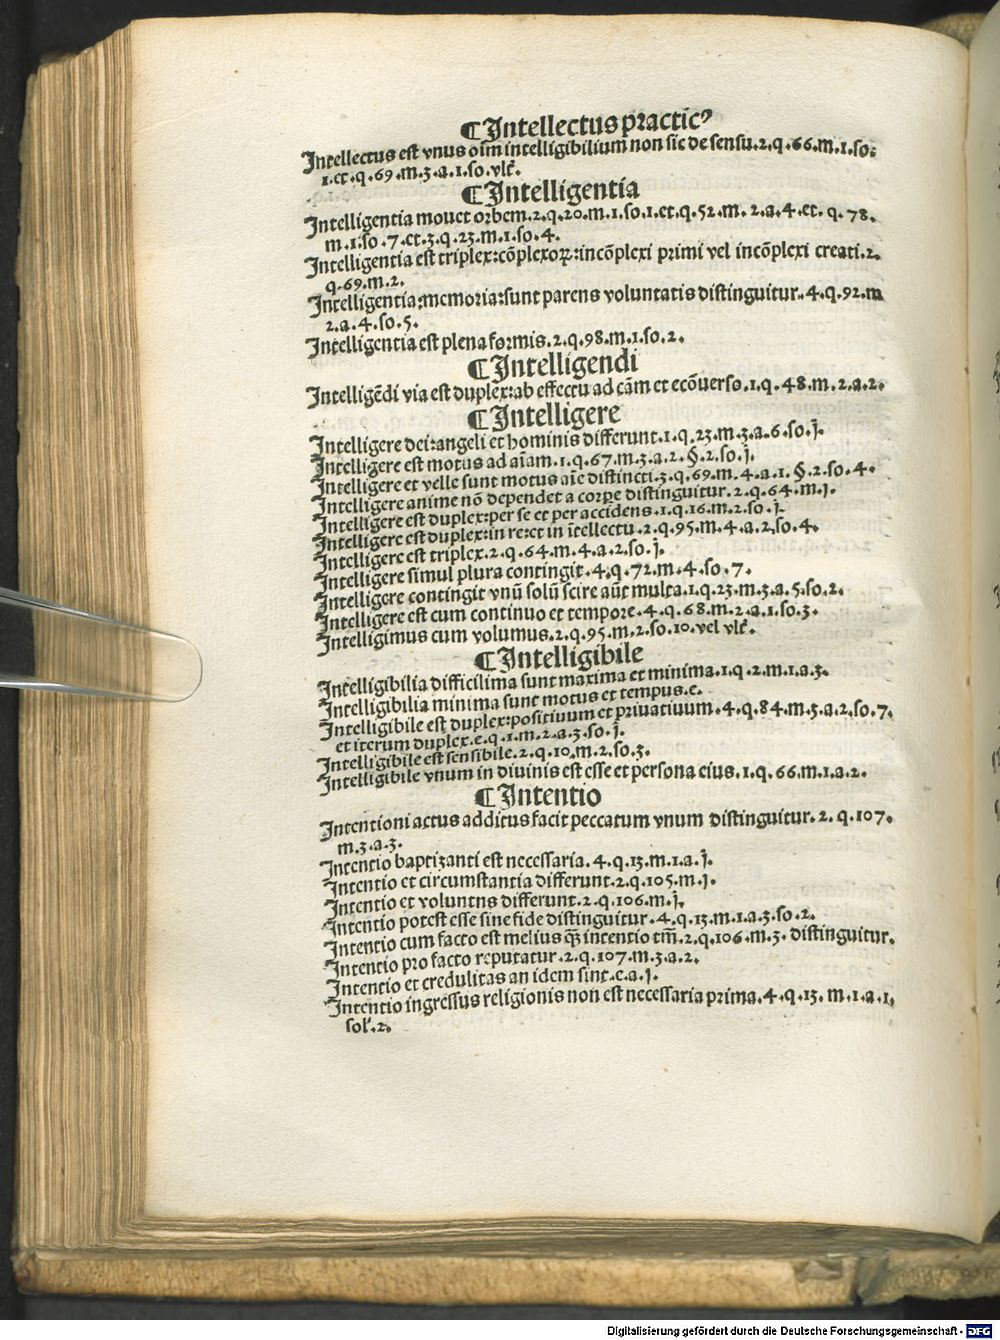 ¶Intellectus practicꝰ
Intellectus est vnus oīm intelligibilium non sic de sensu.2.q.66.m.1.so.
1.et.q.69.m.3.a.1.so.vlt̄.
¶Intelligentia
Intelligentia mouet orbem.2.q.20.m.1.so.1.et.q.52.m.2.a.4.et.q.78.
m.1.so.7.et.3.q.23.m.1.so.4.
Intelligentia est triplex:cōplexoꝝ:incōplexi primi vel incōplexi creati.2.
q.69.m.2.
Intelligentia:memoria:sunt parens voluntatis distinguitur.4.q.92.m
2.a.4.so.5.
Intelligentia est plena formis.2.q.98.m.1.so.2.
¶Intelligendi
Intelligēdi via est duplex:ab effectu ad cām et ecōuerso.1.q.48.m.2.a.2.
¶Intelligere
Intelligere dei:angeli et hominis differunt.1.q.23.m.3.a.6.so.j.
Intelligere est motus ad aīam.1.q.67.m.3.a.2.§.2.so.j.
Intelligere et velle sunt motus aīe distincti.3.q.69.m.4.a.1.§.2.so.4.
Intelligere anime nō dependet a corpe distinguitur.2.q.64.m.j.
Intelligere est duplex:per se et per accidens.1.q.16.m.2.so.j.
Intelligere est duplex:in re:et in ītellectu.2.q.95.m.4.a.2.so.4.
Intelligere est triplex.2.q.64.m.4.a.2.so.j.
Intelligere simul plura contingit.4.q.72.m.4.so.7.
Intelligere contingit vnū solū scire aūt multa.1.q.23.m.3.a.5.so.2.
Intelligere est cum continuo et tempore.4.q.68.m.2.a.1.so.3.
Intelligimus cum volumus.2.q.95.m.2.so.10.vel vlt̄.
¶Intelligibile
Intelligibilia difficilima sunt maxima et minima.1.q.2.m.1.a.3.
Intelligibilia minima sunt motus et tempus.e.
Intelligibile est duplex:positiuum et priuatiuum.4.q.84.m.3.a.2.so.7.
et iterum duplex.e.q.1.m.2.a.3.so.j.
Intelligibile est sensibile.2.q.10.m.2.so.3.
Intelligibile vnum in diuinis est esse et persona eius.1.q.66.m.1.a.2.
¶Intentio
Intentioni actus additus facit peccatum vnum distinguitur.2.q.107.
m.3.a.3.
Intentio baptizanti est necessaria.4.q.13.m.1.a.j.
Intentio et circumstantia differunt.2.q.105.m.j.
Intentio et voluntns differunt.2.q.106.m.j.
Intentio potest esse sine fide distinguitur.4.q.13.m.1.a.3.so.2.
Intentio cum facto est melius q̄ꝫ intentio tm̄.2.q.106.m.3.distinguitur.
Intentio pro facto reputatur.2.q.107.m.3.a.2.
Intentio et credulitas an idem sint.e.a.j.
Intentio ingressus religionis non est necessaria prima.4.q.13.m.1.a.1.
sol̄.2.
Digitalisierung gefördert durch die Deutsche Forschungsgemeinschaft - DFG